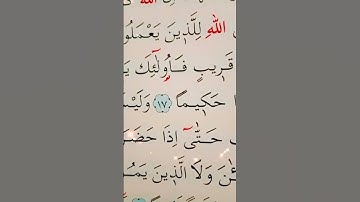 الله
اللهِ لِلَّذِينَ يَعْمَلُو
قَرِيبٍ فَأُولَٰٓئِكَ يَ
حَكِيمًا ﴿١٧﴾ وَلَيْسَ
حَتَّىٰٓ إِذَا حَضَرَ
وَلَا الَّذِينَ يَمُو